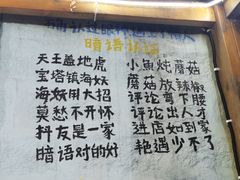 暗语认证
天王盖地虎
宝塔镇海妖
海妖用大招
莫愁不开怀
抖友是一家
暗语对的好
小鱼炖蘑菇
蘑菇放辣椒
评论弯下腰
评论出人才
进店如到家
艳遇少不了